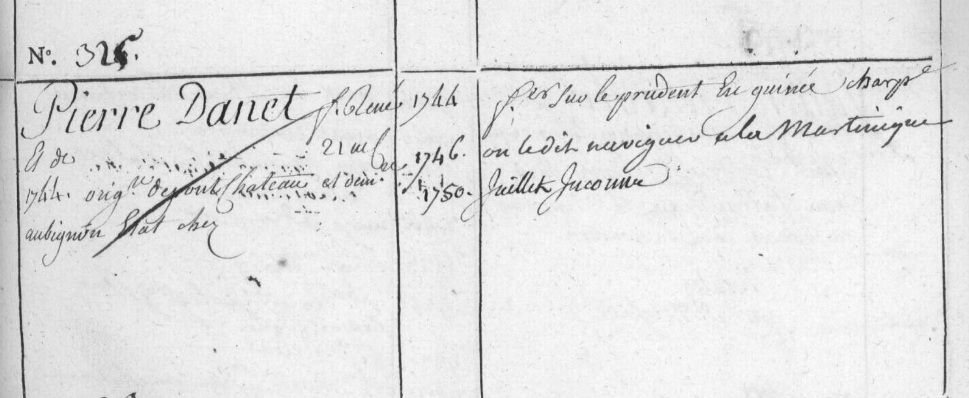 N°. 325.
Pierre Danet f. René
Et de 21 au
1744. orig.re de Chateau et dem.
aubignon Etat chez
1744
1746.
1750.
f.er Sur le prudent En guinée charp.e
on le dit naviguer a la Martinique
Juillet Inconnu